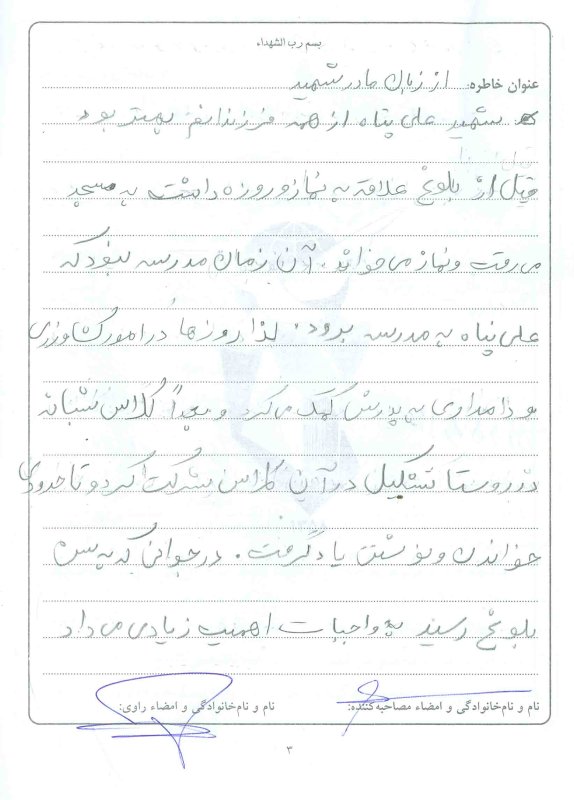 بسم رب الشهداء
عنوان خاطره: از زبان مادر شهید
شهید علی پناه از همه فرزندانم بهتر بود
قبل از بلوغ علاقه به نماز و روزه داشت به مسجد
می رفت و نماز می خواند. آن زمان مدرسه نبود که
علی پناه به مدرسه برود. لذا روزها در امور کشاورزی
و دامداری به پدرش کمک می کرد و بعداً کلاس شبانه
در روستا تشکیل در آن کلاس شرکت کرد و تا حدودی
خواندن و نوشتن یاد گرفت. در جوانی که به سن
بلوغ رسید به واجبات اهمیت زیادی می داد
نام و نام‌خانوادگی و امضاء مصاحبه‌کننده: نام و نام‌خانوادگی و امضاء راوی:
۳